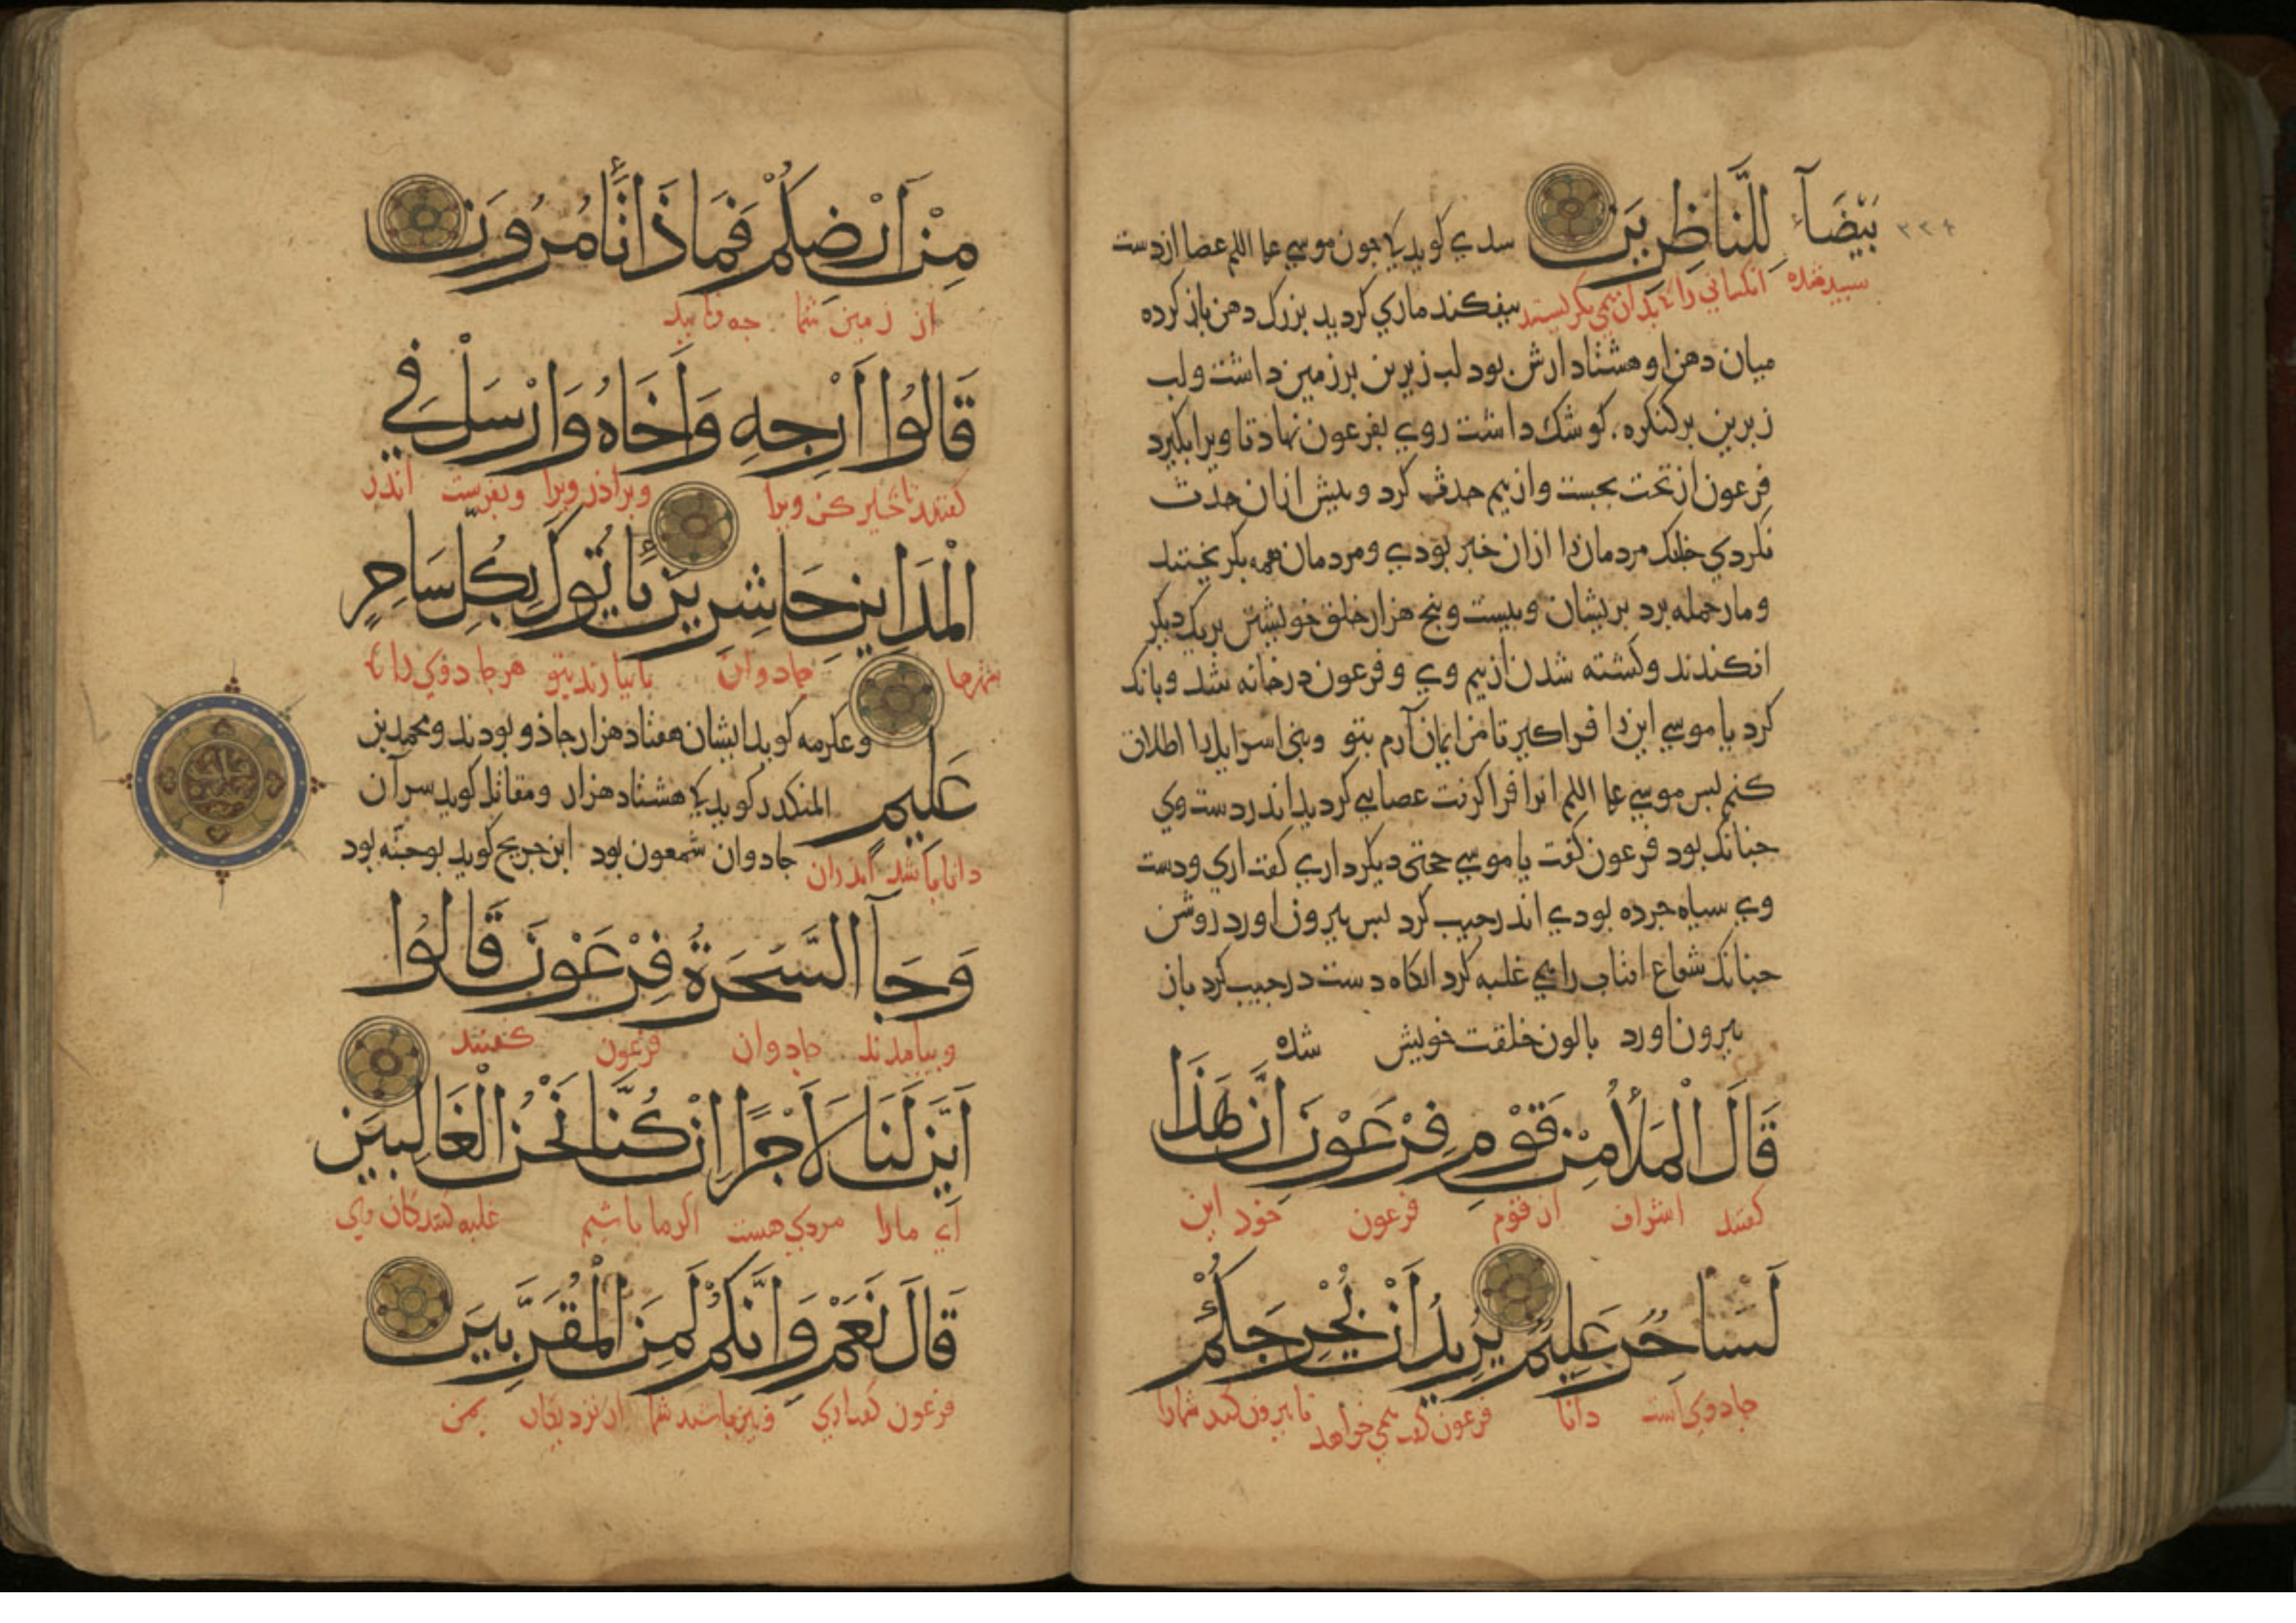 بَيْضَآءُ لِلنَّاظِرِينَ سدي كويد كا جون موسي عا اللم عصا از دست
سپيد شده انكساني را كه بدان همي نكرستند بيفكند ماري كرديد بزرك دهن باز كرده
ميان دهن او هشتاد ارش بود لب زيرين بر زمين داشت و لب
زبرين بر كنكره كوشك داشت روي بفرعون نهاد تا ويرا بكيرد
فرعون از تخت بجست و از بيم حدث كرد و پيش از ان حدث
نكردي جنانك مردمان را ازان خبر بودي و مردمان همه بكريختند
و مار حمله برد بريشان و بيست و پنج هزار خلق خويشتن بر يك ديكر
افكندند و كشته شدند از بيم وي و فرعون در خانه شد و بانك
كرد يا موسي اين را فراكير تا من ايمان آرم بتو و بني اسرايل را اطلاق
كنم بس موسي عا اللم انرا فرا كرفت عصايي كرديد اندر دست وي
جنانك بود فرعون كفت يا موسي حجتي ديكر داري كفت اري و دست
وي سياه جرده بودي اندر جيب كرد بس بيرون اورد روشن
جنانك شعاع افتاب را همي غلبه كرد انكاه دست در جيب كرد باز
بيرون اورد با لون خلقت خويش شده
قَالَ الْمَلَأُ مِنْ قَوْمِ فِرْعَوْنَ اِنَّ هَذَا
كفتند اشراف از قوم فرعون خود اين
لَسَاحِرٌ عَلِيمٌ يُرِيدُ اَنْ يُخْرِجَكُمْ
جادوي است دانا فرعون كفت همي خواهد تا بيرون كند شما را
مِنْ اَرْضِكُمْ فَمَاذَا تَأْمُرُونَ
از زمين شما جه فرماييد
قَالُوا اَرْجِهِ وَاَخَاهُ وَاَرْسِلْ فِي
كفتند تاخير كن ويرا و برادر ويرا و بفرست اندر
الْمَدَايِنِ حَاشِرِينَ يَأْتُوكَ بِكُلِّ سَاحِرٍ
شهرها جادوان تا بيارند بتو هر جادوي را كه
و عكرمه كويد ايشان هفتاد هزار جاذو بودند و محمد بن
عَلِيمٍ المنكدر كويد كا هشتاد هزار و مقاتل كويد سر آن
دانا باشد اندران جادوان شمعون بود ابن جريج كويد يوحنه بود
وَجَآءَ السَّحَرَةُ فِرْعَوْنَ قَالُوا
و بيامدند جادوان فرعون كفتند
اَئِنَّ لَنَا لَاَجْرًا اِنْ كُنَّا نَحْنُ الْغَالِبِينَ
اي مارا مزدي هست اكر ما باشيم غلبه كنندكان وي
قَالَ نَعَمْ وَاِنَّكُمْ لَمِنَ الْمُقَرَّبِينَ
فرعون كفت اري و نيز باشيد شما از نزديكان بمن